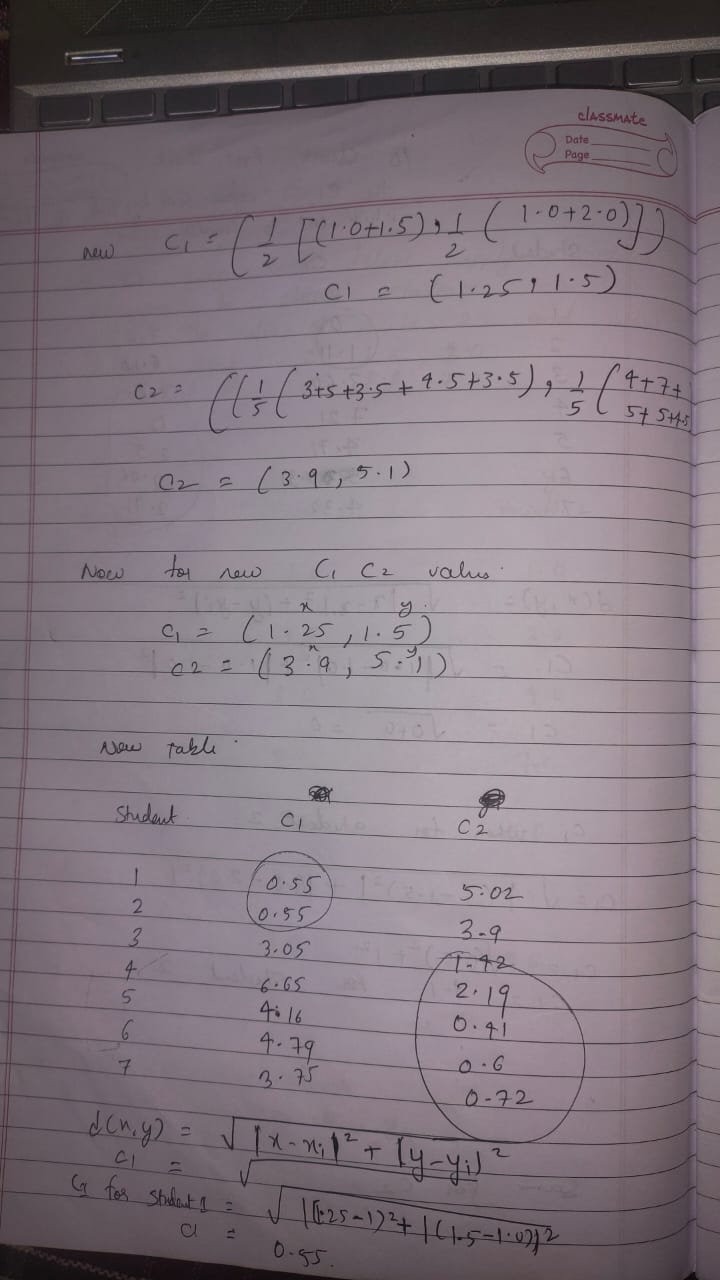 classmate
Date
Page
new C1 = (1/2 [(1.0+1.5), 1/2 (1.0+2.0)])
C1 = (1.25, 1.5)
C2 = ((1/5 (3+5+3.5+4.5+3.5), 1/5 (4+7+
5+5+4.5
C2 = (3.9, 5.1)
Now for new C1 C2 values.
x y
C1 = (1.25, 1.5)
x y
C2 = (3.9, 5.1)
New Table
Student C1 C2
1 0.55 5.02
2 0.55 3.9
3 3.05 1.42
4 6.65 2.19
5 4.16 0.41
6 4.79 0.6
7 3.75 0.72
d(x,y) = √|x-xi|² + |y-yi|²
C1 = √
C1 for student 1 = √|(1.25-1)²+|(1.5-1.0)|²
C1 = 0.55.